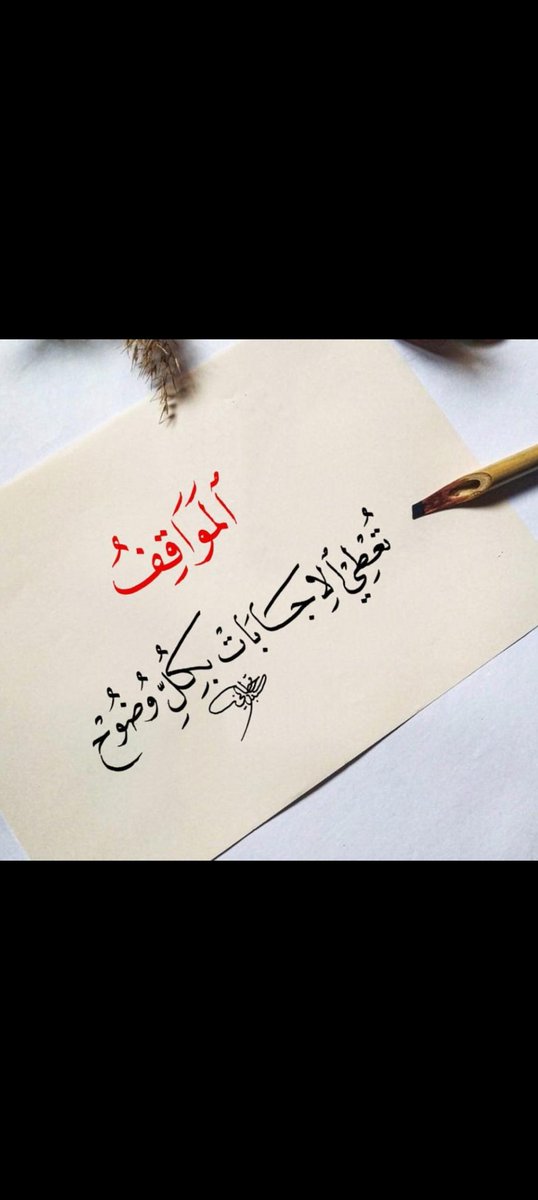 ٱلْمَوَاقِفُ
تُعْطِيْ ٱلِاجَابَاتْ بِكُلِّ وُضُوْحْ